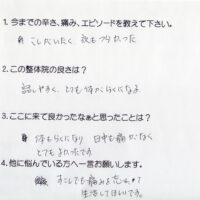 1. 今までの辛さ、痛み、エピソードを教えて下さい。
こしがいたく 夜もつらかった
2. この整体院の良さは？
話しやすく、とても体がらくになる
3. ここに来て良かったなぁと思ったことは？
体もらくになり 日中も痛みがなく
とてもよかったです
4. 他に悩んでいる方へ一言お願いします。
すこしでも痛みを忘れて
生活してほしいです。